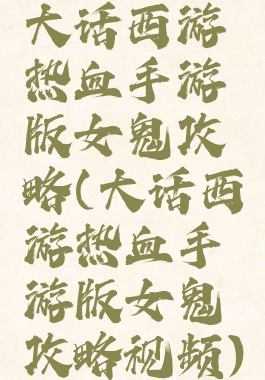 大话西游
热血手游
版女鬼攻
略(大话西
游热血手
游版女鬼
攻略视频)